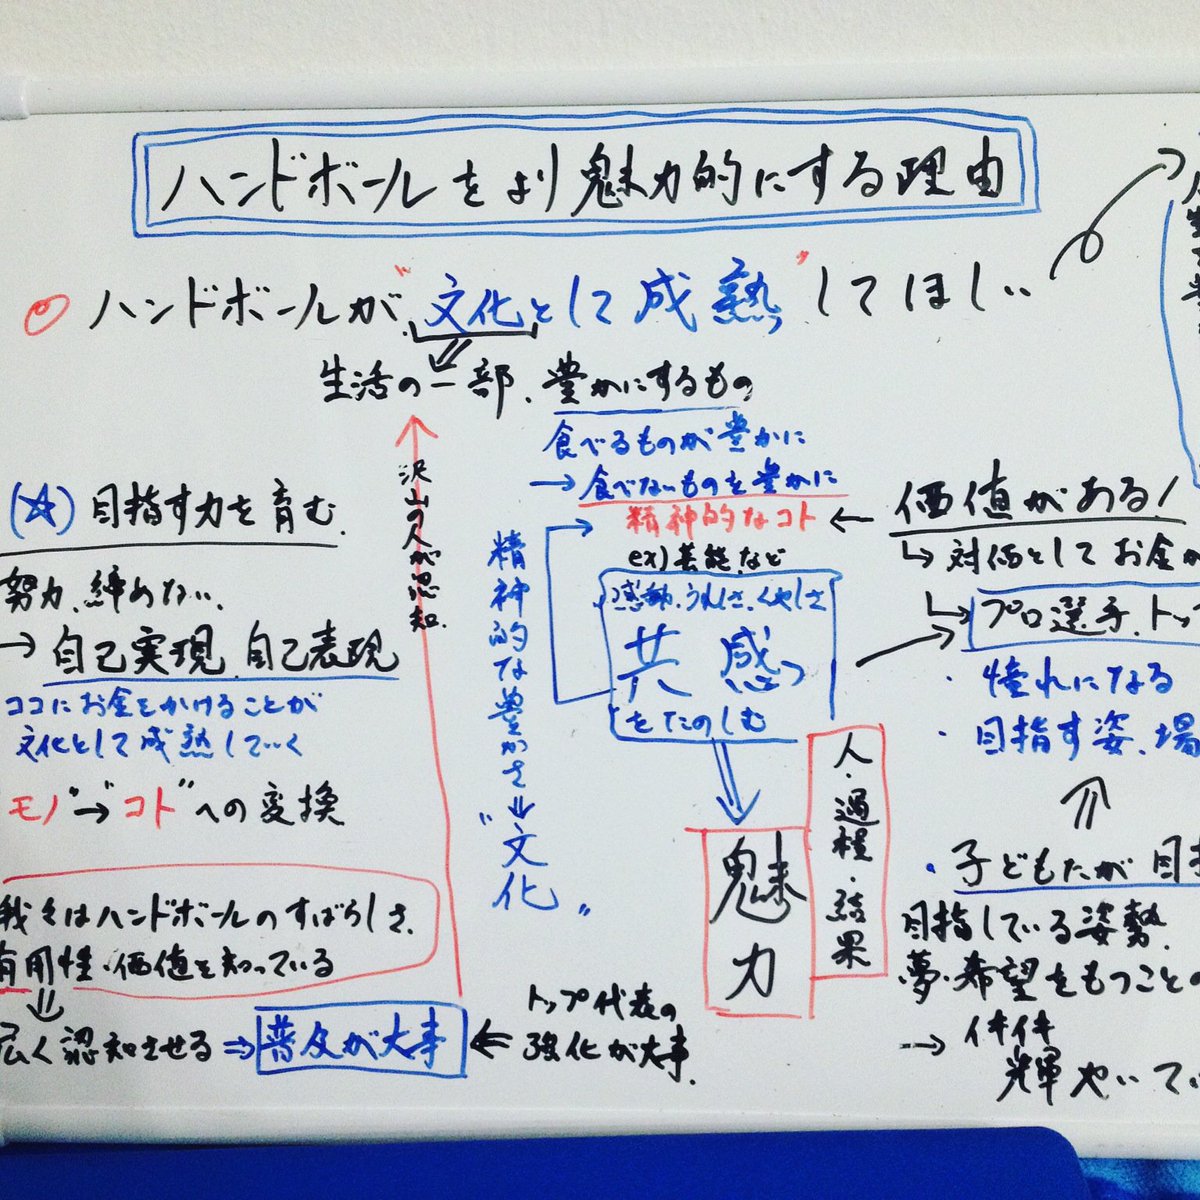 ハンドボールをより魅力的にする理由
ハンドボールが"文化として成熟"してほしい
生活の一部、豊かにするもの
食べるものが豊かに
→食べないものを豊かに
精神的なコト
ex)芸能など
感動、うれしさ、くやしさ
共感
をたのしむ
魅力
人・過程・結果
精神的な豊かさ⇒"文化"
沢山の人が認知
(☆)目指す力を育む
努力、締めない、
→自己実現、自己表現
ココにお金をかけることが
文化として成熟していく
モノ"→"コト"への変換
我々はハンドボールのすばらしさ、
有用性・価値を知っている
広く認知させる⇒普及が大事
←トップ代表の
強化が大事、
←価値がある!
↳対価としてお金が
↳プロ選手、トッ
・憧れになる
・目指す姿、場
・子どもたが目指
目指している姿勢、
夢・希望をもつことの
→イキイキ
輝やいてい